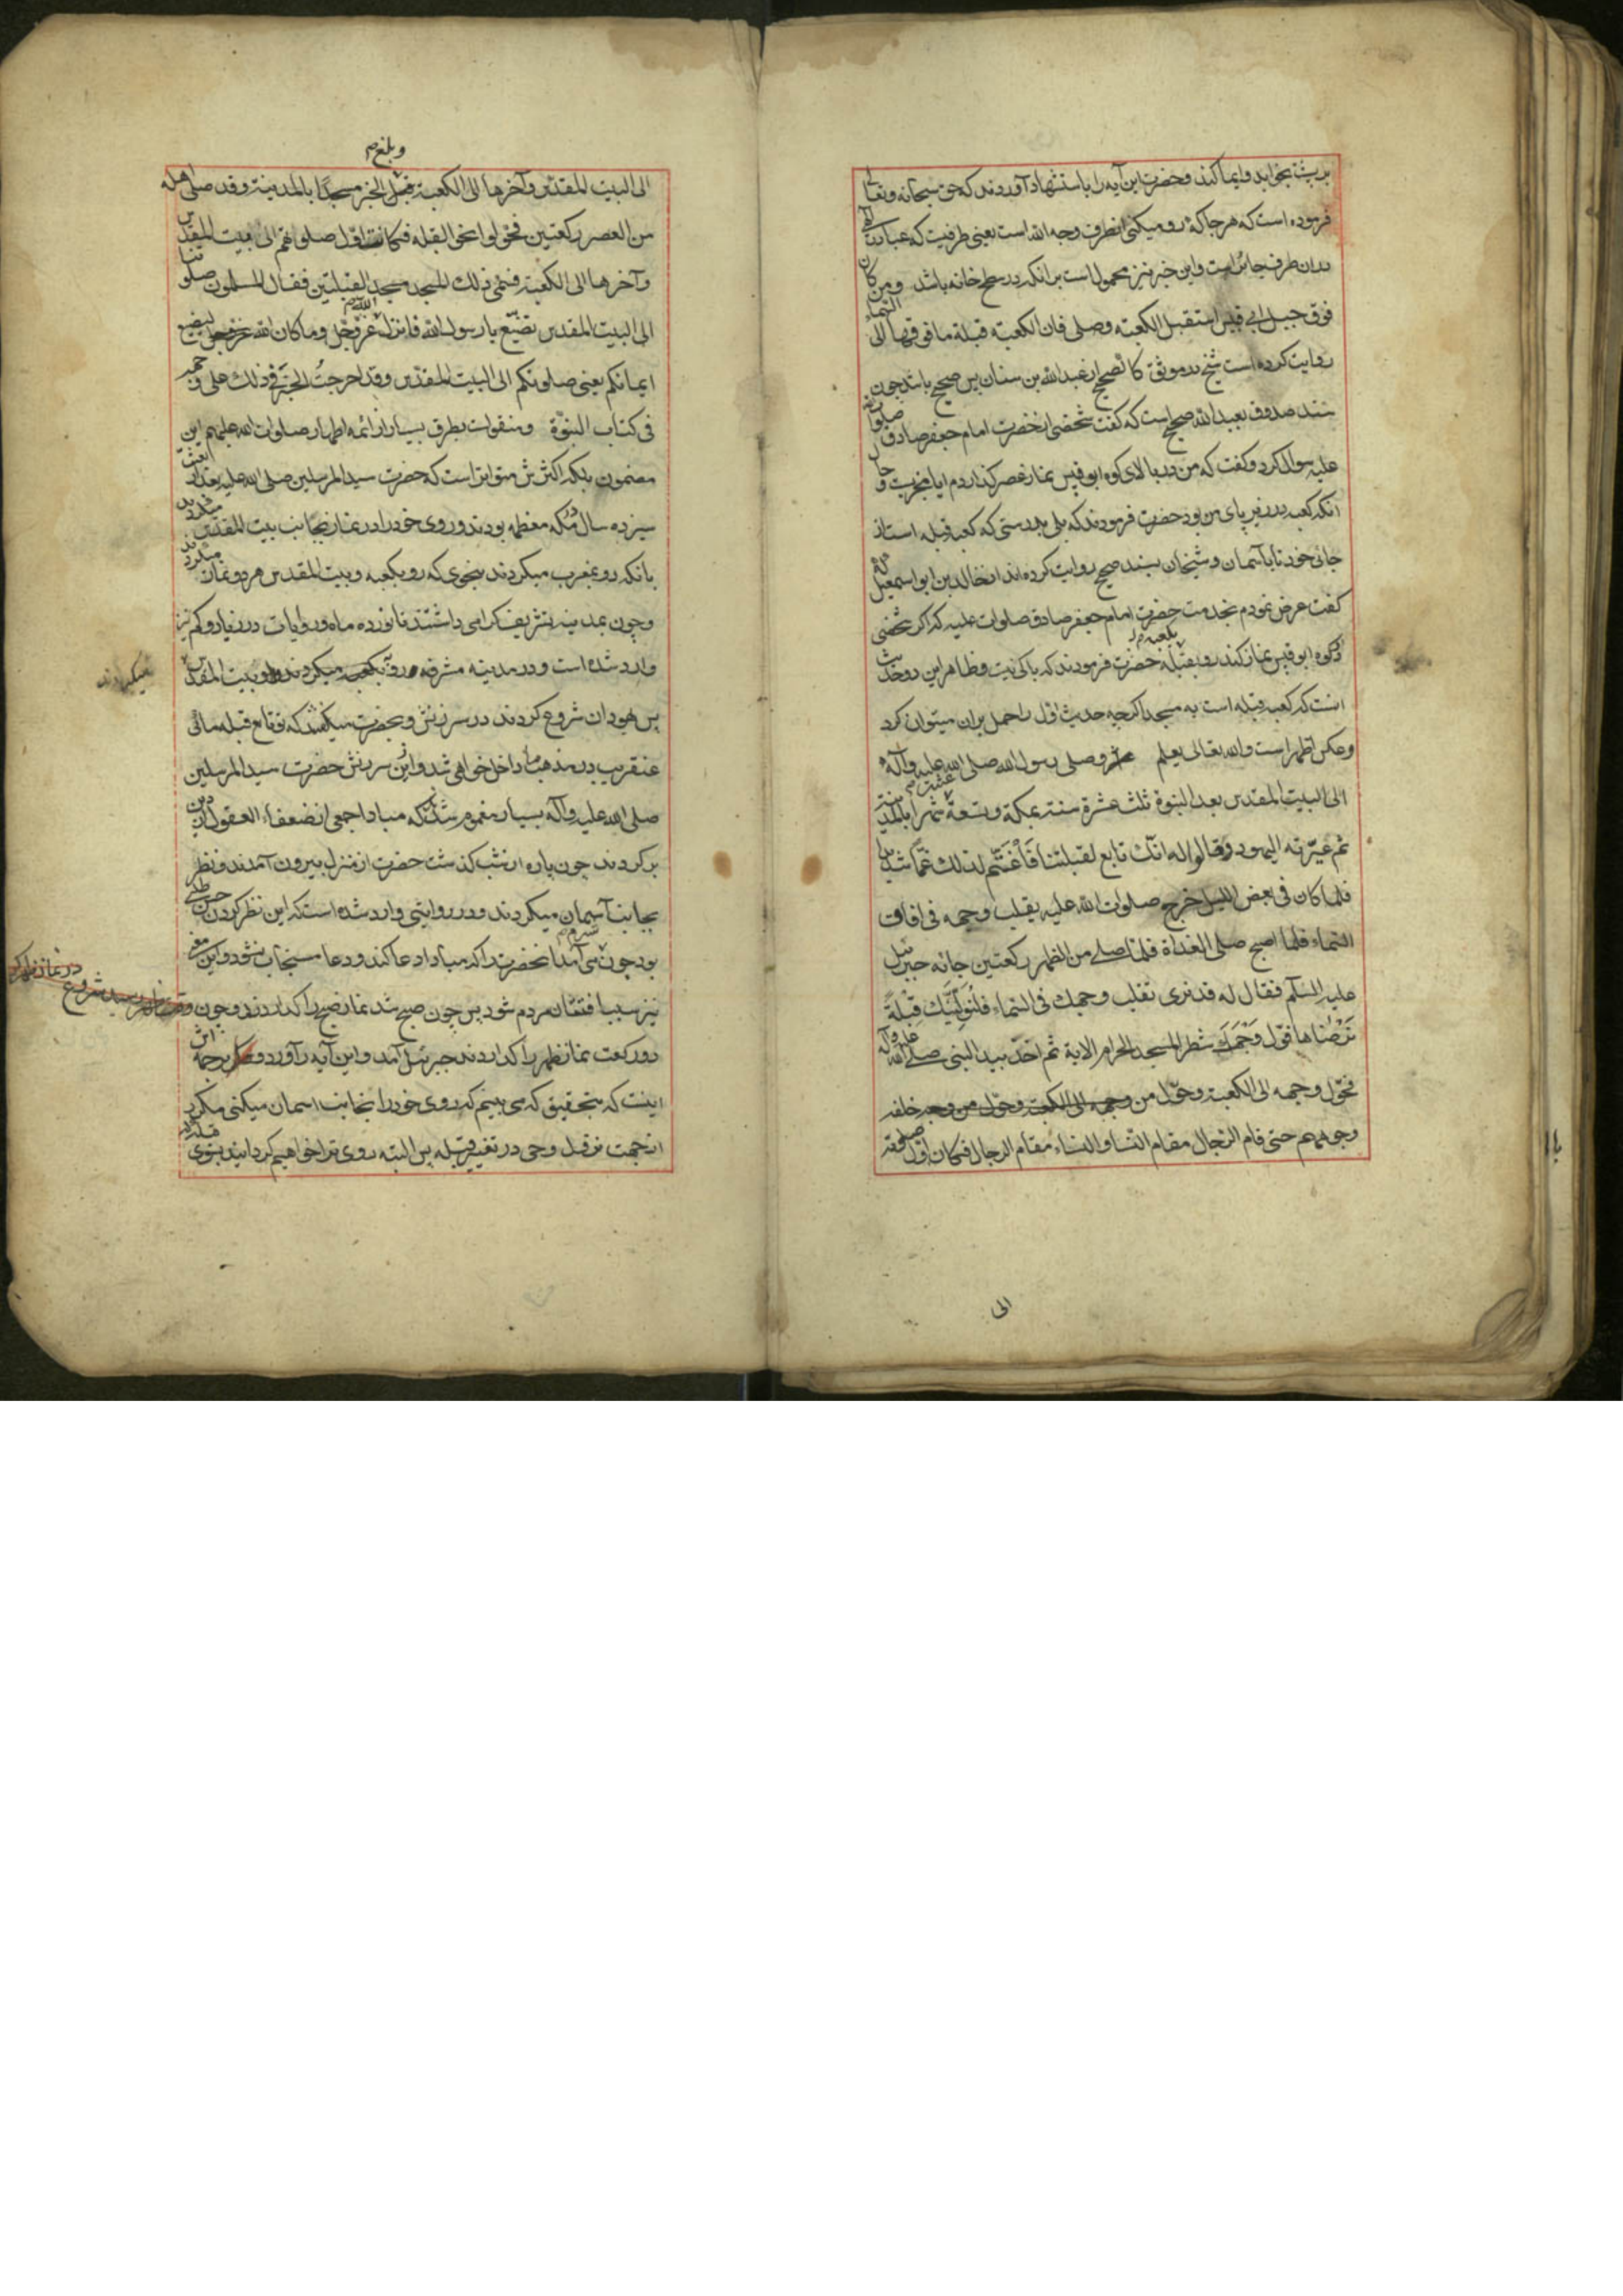 بر پشت بخوابد و ایما کند و حضرت این آیه را باستشهاد آوردند که حق سبحانه و تعالی
فرموده است که هر جا که رو میکنی انطرف وجه الله است یعنی طرفیست که عبادت الهی
بدان طرف جایز است و این خبر نیز محمولست برانکه در سطح خانه باشد ومن کان
فوق جبل ابی قبیس استقبل الکعبة وصلی فان الکعبة قبلة ما فوقها الی السماء
روایت کرده است شیخ در موثق کالصحیح از عبدالله بن سنان پس صحیح باشد چون
سند صدوق بعبدالله صحیح است که گفت شخصی از حضرت امام جعفر صادق صلوات الله
علیه سوال کرد و گفت که من در بالای کوه ابو قبیس نماز عصر گذاردم ایا مجزیست و حال
انکه کعبه در زیر پای من بود حضرت فرمودند که بلی بدرستی که کعبه قبله است از
جای خود تا بآسمان و شیخان بسند صحیح روایت کرده‌اند از خالد بن ابو اسمعیل که
گفت عرض نمودم بخدمت حضرت امام جعفر صادق صلوات علیه که اگر شخصی
در کوه ابو قبیس نماز کند رو بقبله حضرت فرمودند که باکی نیست و ظاهر این دو حدیث
بکعبه م
انست که کعبه قبله است نه مسجد اگرچه حدیث اول را حمل بران میتوان کرد
و عکس اظهر است والله تعالی یعلم وصلی رسول الله صلی الله علیه وآله
الی البیت المقدس بعد النبوة ثلث عشرة سنة بمکة وتسعة عشر شهرا بالمدینة
ثم عیّرته الیهود وقالوا له انک تابع لقبلتنا فَاغْتَمّ لذلک غمّا شدیدا
فلما کان فی بعض اللیل خرج صلوات الله علیه یقلب وجهه فی افاق
السماء فلما اصبح صلی الغداة فلما صلی من الظهر رکعتین جائه جبرئیل
علیه السلام فقال له قد نری تقلب وجهک فی السماء فَلَنُوَلِّیَنَّکَ قِبْلَةً
تَرْضٰیها فَوَلِّ وَجْهَکَ شطر المسجد الحرام الایة ثم اخذ بید النبی صلی الله علیه وآله
فحوّل وجهه الی الکعبة وحوّل من وجهه الی الکعبة وحوّل من وجه خلفه
وجوههم حتی قام الرجال مقام النساء والنساء مقام الرجال فکان اول صلوته
الی
وبلغ م
الی البیت المقدس وآخرها الی الکعبة فبلغ الخبر مسجدا بالمدینة وقد صلی اهله
من العصر رکعتین فحوّلوا نحو القبلة فکانت اول صلوتهم الی بیت المقدس
وآخرها الی الکعبة فسمّی ذلک المسجد مسجد القبلتین فقال المسلمون صلوتنا
الی البیت المقدس تضیّع یا رسول الله فانزل الله عزّ وجل وما کان الله لیضیع
ایمانکم یعنی صلوتکم الی البیت المقدس وقد اخرجتُ الخبر فی ذلک علی وجهه
فی کتاب النبوّة ومنقولست بطرق بسیار از ائمه اطهار صلوات الله علیهم این
مضمون بلکه اکثرش متواتر است که حضرت سید المرسلین صلی الله علیه بعد از بعثت
سیزده سال در مکه معظمه بودند و روی خود را در نماز بجانب بیت المقدس میکردند
بانکه رو بمغرب میکردند بنحوی که رو بکعبه و بیت المقدس هر دو نماز میکردند
و چون بمدینه تشریف گرامی داشتند تا نوزده ماه و روایات در زیاد و کم نیز
وارد شده است و در مدینه مشرفه رو بکعبه میکردند و رو ببیت المقدس
نمیکردند
پس یهودان شروع کردند در سرزنش و بحضرت میگفتند که تو تابع قبله مائی
عنقریب در مذهب ما داخل خواهی شد و ازین سرزنش حضرت سید المرسلین
صلی الله علیه وآله بسیار مغموم شدند که مبادا جمعی از ضعفاء العقول از دین
برگردند چون پاره از شب گذشت حضرت از منزل بیرون آمدند و نظر
بجانب آسمان میکردند و در روایتی وارد شده است که این نظر کردن حسن طلبی
بود چون شرم می‌آمد آنحضرت را که مبادا دعا کند و دعا مستجاب نشود و این معنی
نیز سبب افتتان مردم شود پس چون صبح شد نماز صبح را گذاردند و چون
در نماز ظهر
شروع
دو رکعت نماز ظهر را گذاردند جبرئیل آمد و این آیه را آورد که ترجمه‌اش
اینست که بتحقیق که می بینم که روی خود را بجانب اسمان میکنی مکرر
از جهت نزول وحی در تغییر قبله پس البته روی ترا خواهیم گردانید بسوی قبله که